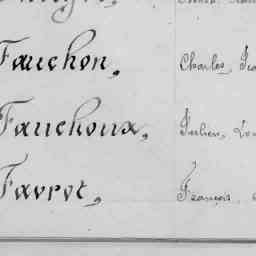 Fauchon, Charles,
Fauchoux, Julien,
Favrot, François,